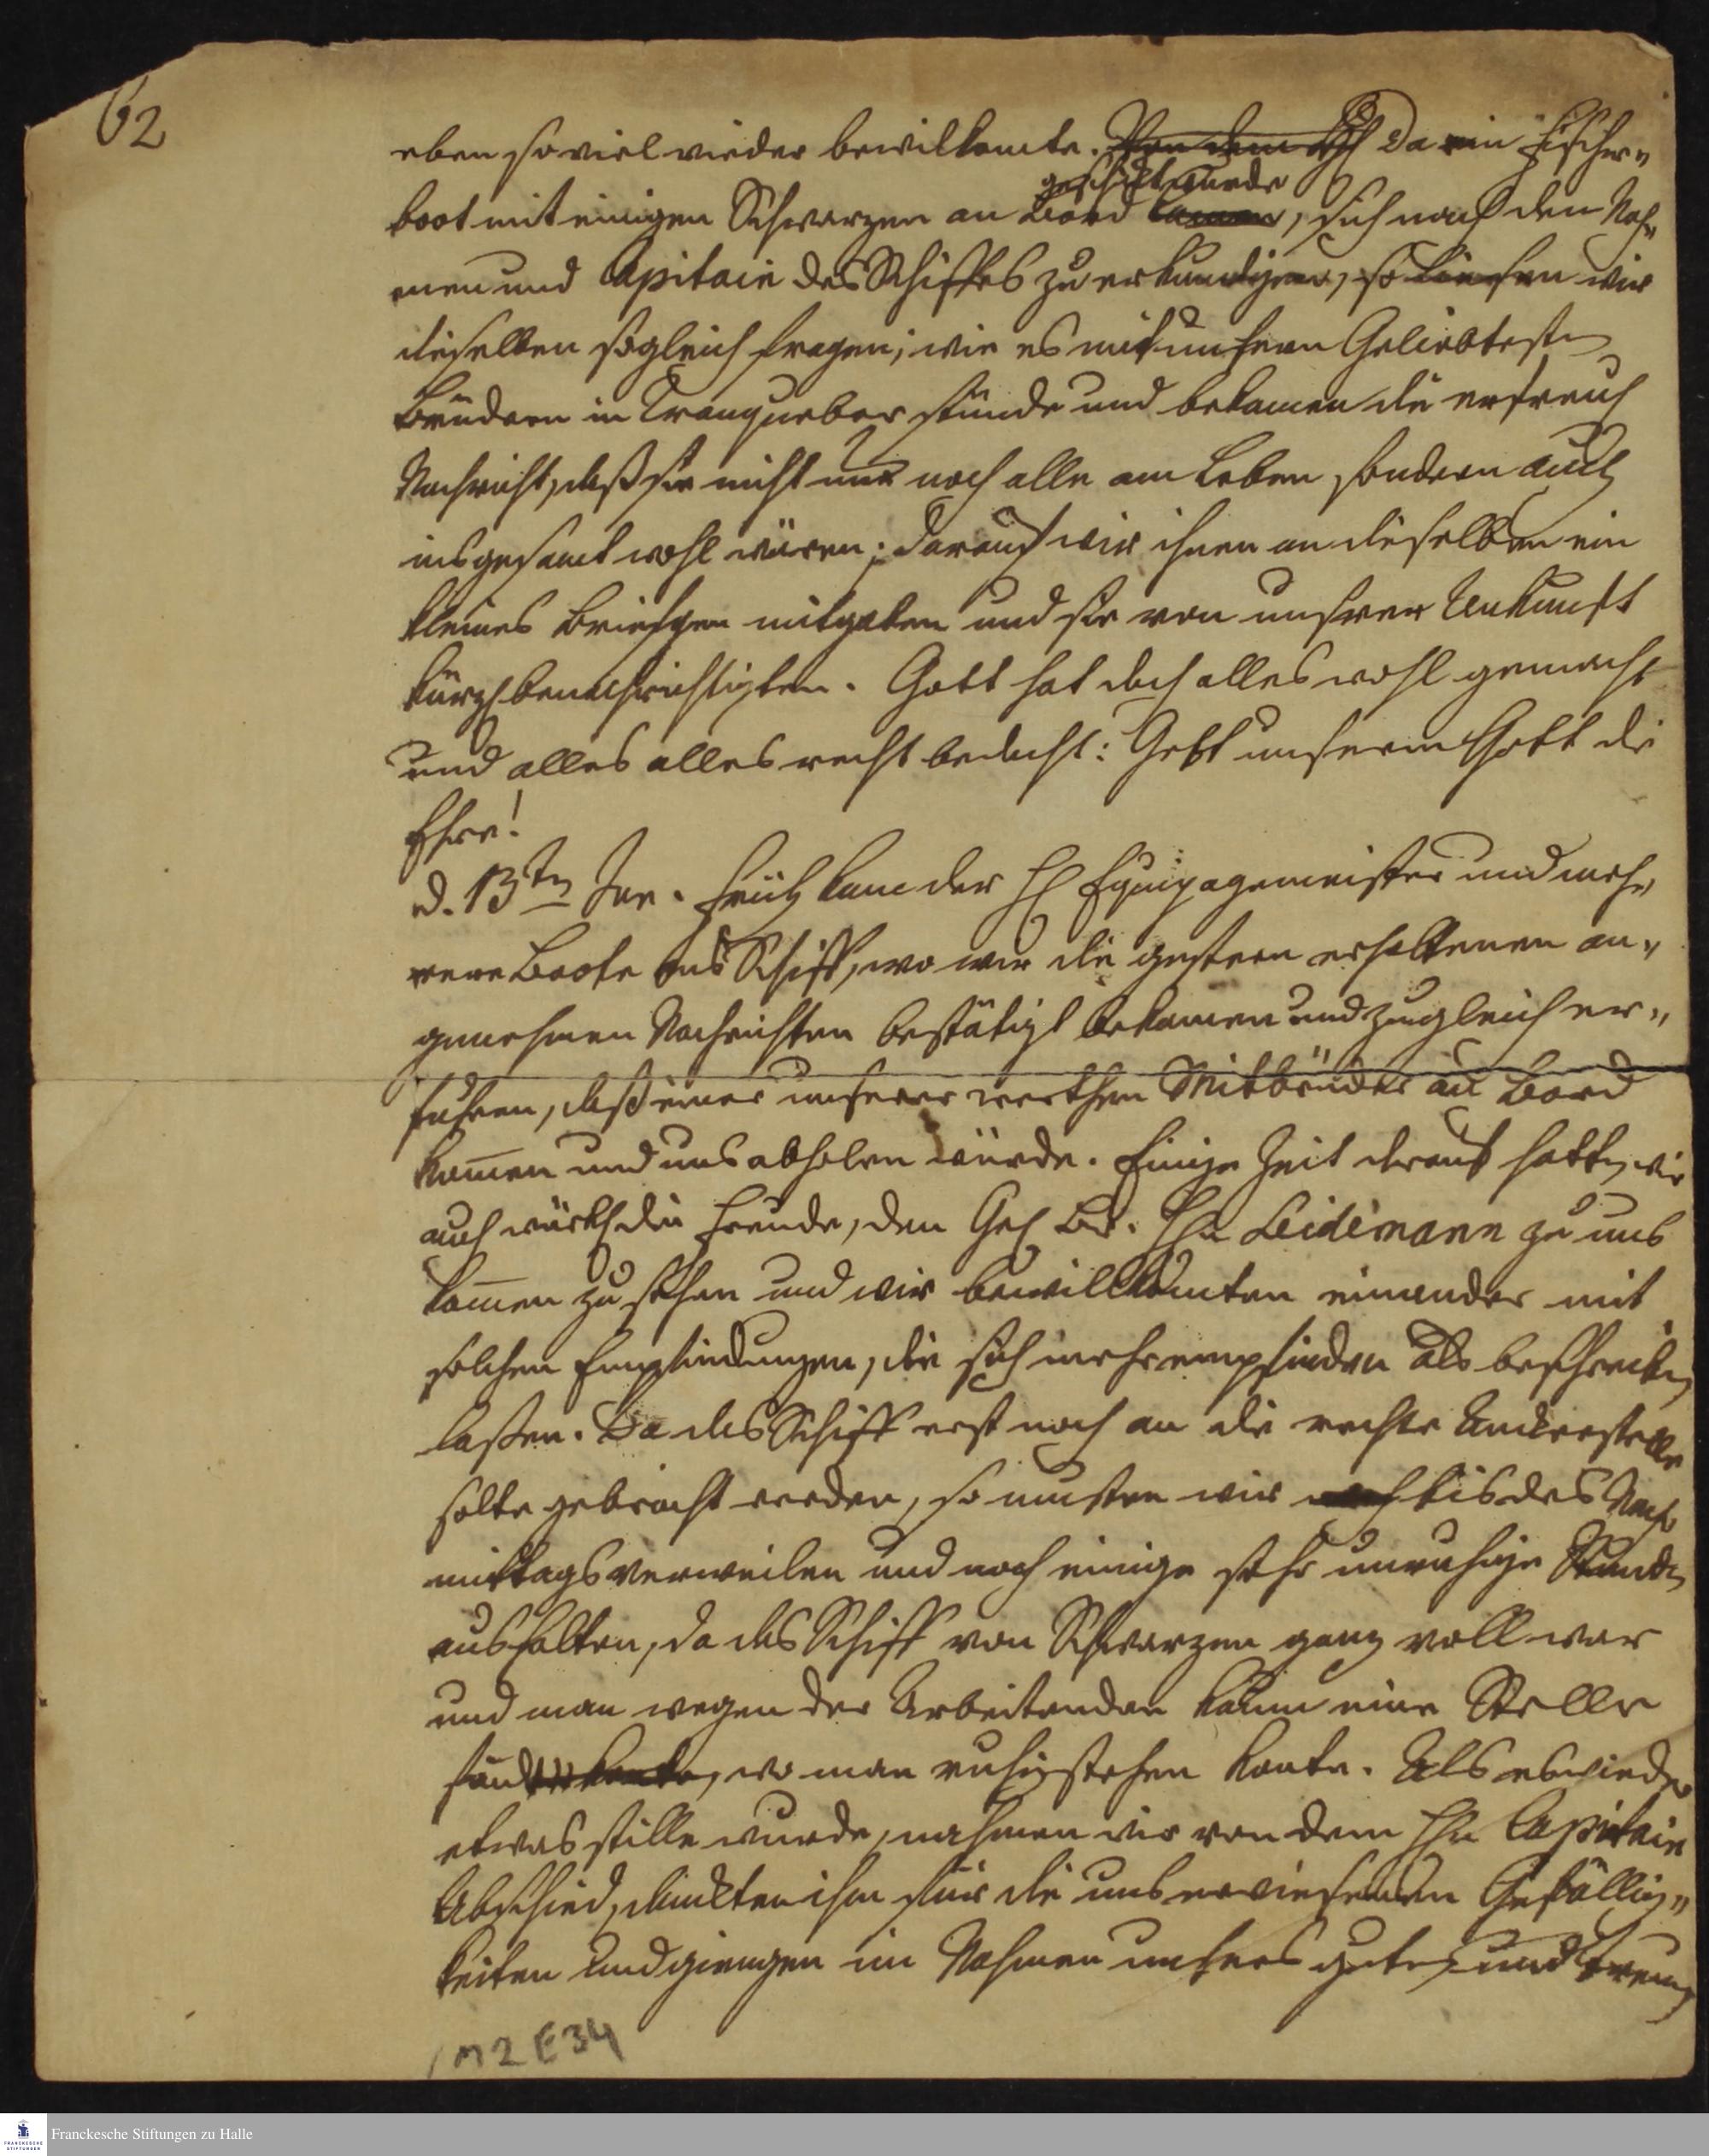 62
eben so viel wieder bewilkomte. Von dem Da ein Fischer„
geschikt wurde
boot mit einigen Schwarzen an Bord kamen, sich nach den Nah„
men und Capitain des Schiffes zu erkundigen, so liesen wir
dieselben sogleich fragen, wie es mit unsern Geliebtesten
Brüdern in Tranquebar stünde und bekamen die erfreul
Nachricht, daß sie nicht nur noch alle am Leben sondern auch
insgesamt wohl wären; darauf wir ihnen an dieselben ein
kleines Briefgen mitgaben und sie von unsrer Ankunft
kürzl benachrichtigten. Gott hat doch alles wohl gemacht
und alles alles recht bedacht: Gebt unserm Gott die
Ehre!
d. 13ten Jun. früh kam der H Equipagemeister und meh„
rere Boote ans Schiff, wo wir die gestern erhaltenen an„
genehmen Nachrichten bestätigt bekamen und zugleich er„
fuhren, daß einer unserer werthen Mitbrüder an Bord
kom̅en und uns abholen würde. Einige Zeit darauf hatten wir
auch würkl die Freude, den Gel Br. Hn Leidemann zu uns
kom̅en zu sehen und wir bewillkomten einander mit
solchen Empfindungen, die sich mehr empfinden als beschreiben
laßen. Da das Schiff erst noch an die rechte Ankerstelle
solte gebracht werden, so musten wir noch bis des Nach
mittags verweilen und noch einige sehr unruhige Stunden
aushalten, da das Schiff von Schwarzen ganz voll war
und man wegen der Arbeitenden kaum eine Stelle
fand konte, wo man ruhig stehen konte. Als es wieder
etwas stille wurde, nahmen wir von dem Hn Capitain
Abschied, dankten ihm für die uns erwiesenen Gefällig„
keiten und giengen im Nahmen unsers guten und treuen
1 M 2 E 34
Franckesche Stiftungen zu Halle
FRANCKESCHE STIFTUNGEN